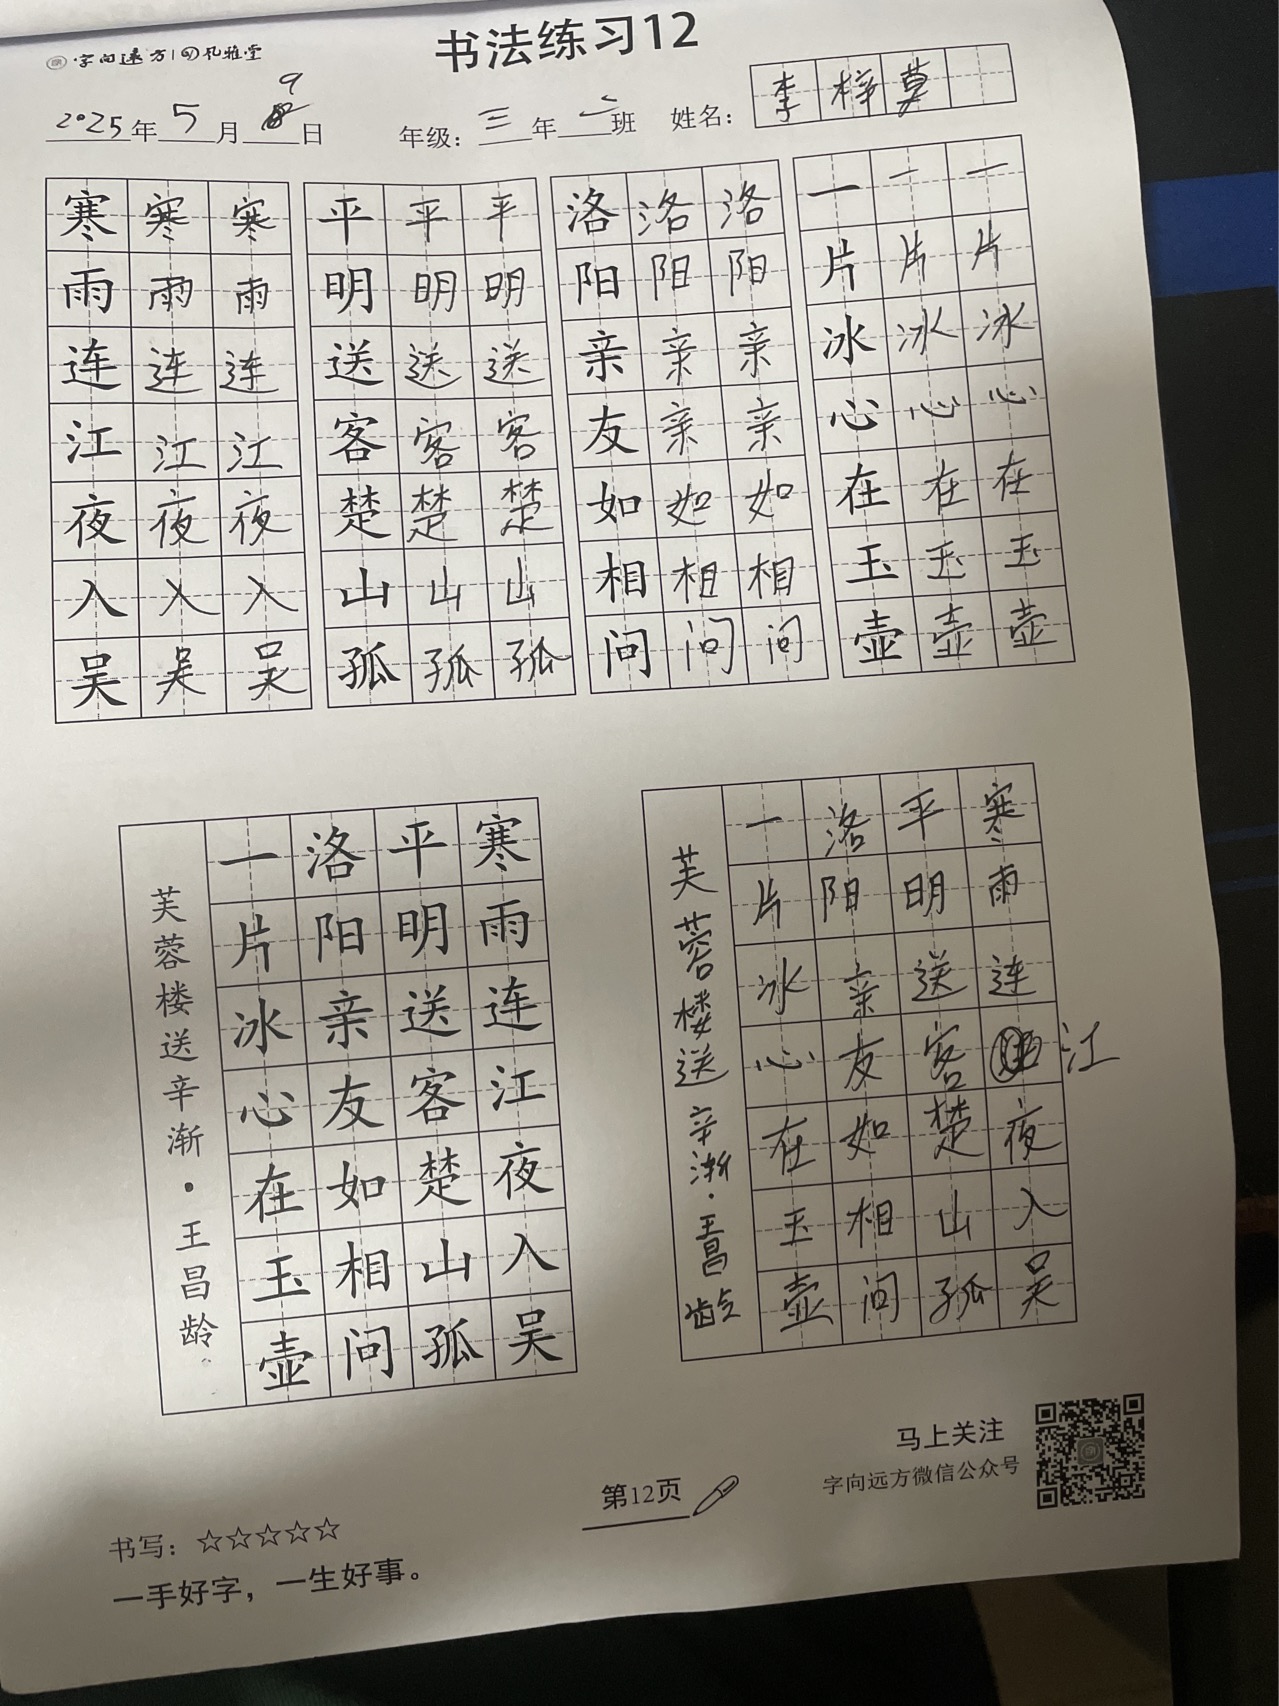 字向远方 孔雅堂
书法练习12
2025年5月9日 年级：三年二班 姓名：李梓莫
寒寒寒 平平平 洛洛洛 一一一
雨雨雨 明明明 阳阳阳 片片片
连连连 送送送 亲亲亲 冰冰冰
江江江 客客客 友亲亲 心心心
夜夜夜 楚楚楚 如如如 在在在
入入入 山山山 相相相 玉玉玉
吴吴吴 孤孤孤 问问问 壶壶壶
寒雨连江夜入吴
平明送客楚山孤
洛阳亲友如相问
一片冰心在玉壶
芙蓉楼送辛渐·王昌龄
寒雨连江夜入吴
平明送客楚山孤
洛阳亲友如相问
一片冰心在玉壶
芙蓉楼送辛渐·王昌龄
马上关注
字向远方微信公众号
第12页
书写：☆☆☆☆☆
一手好字，一生好事。